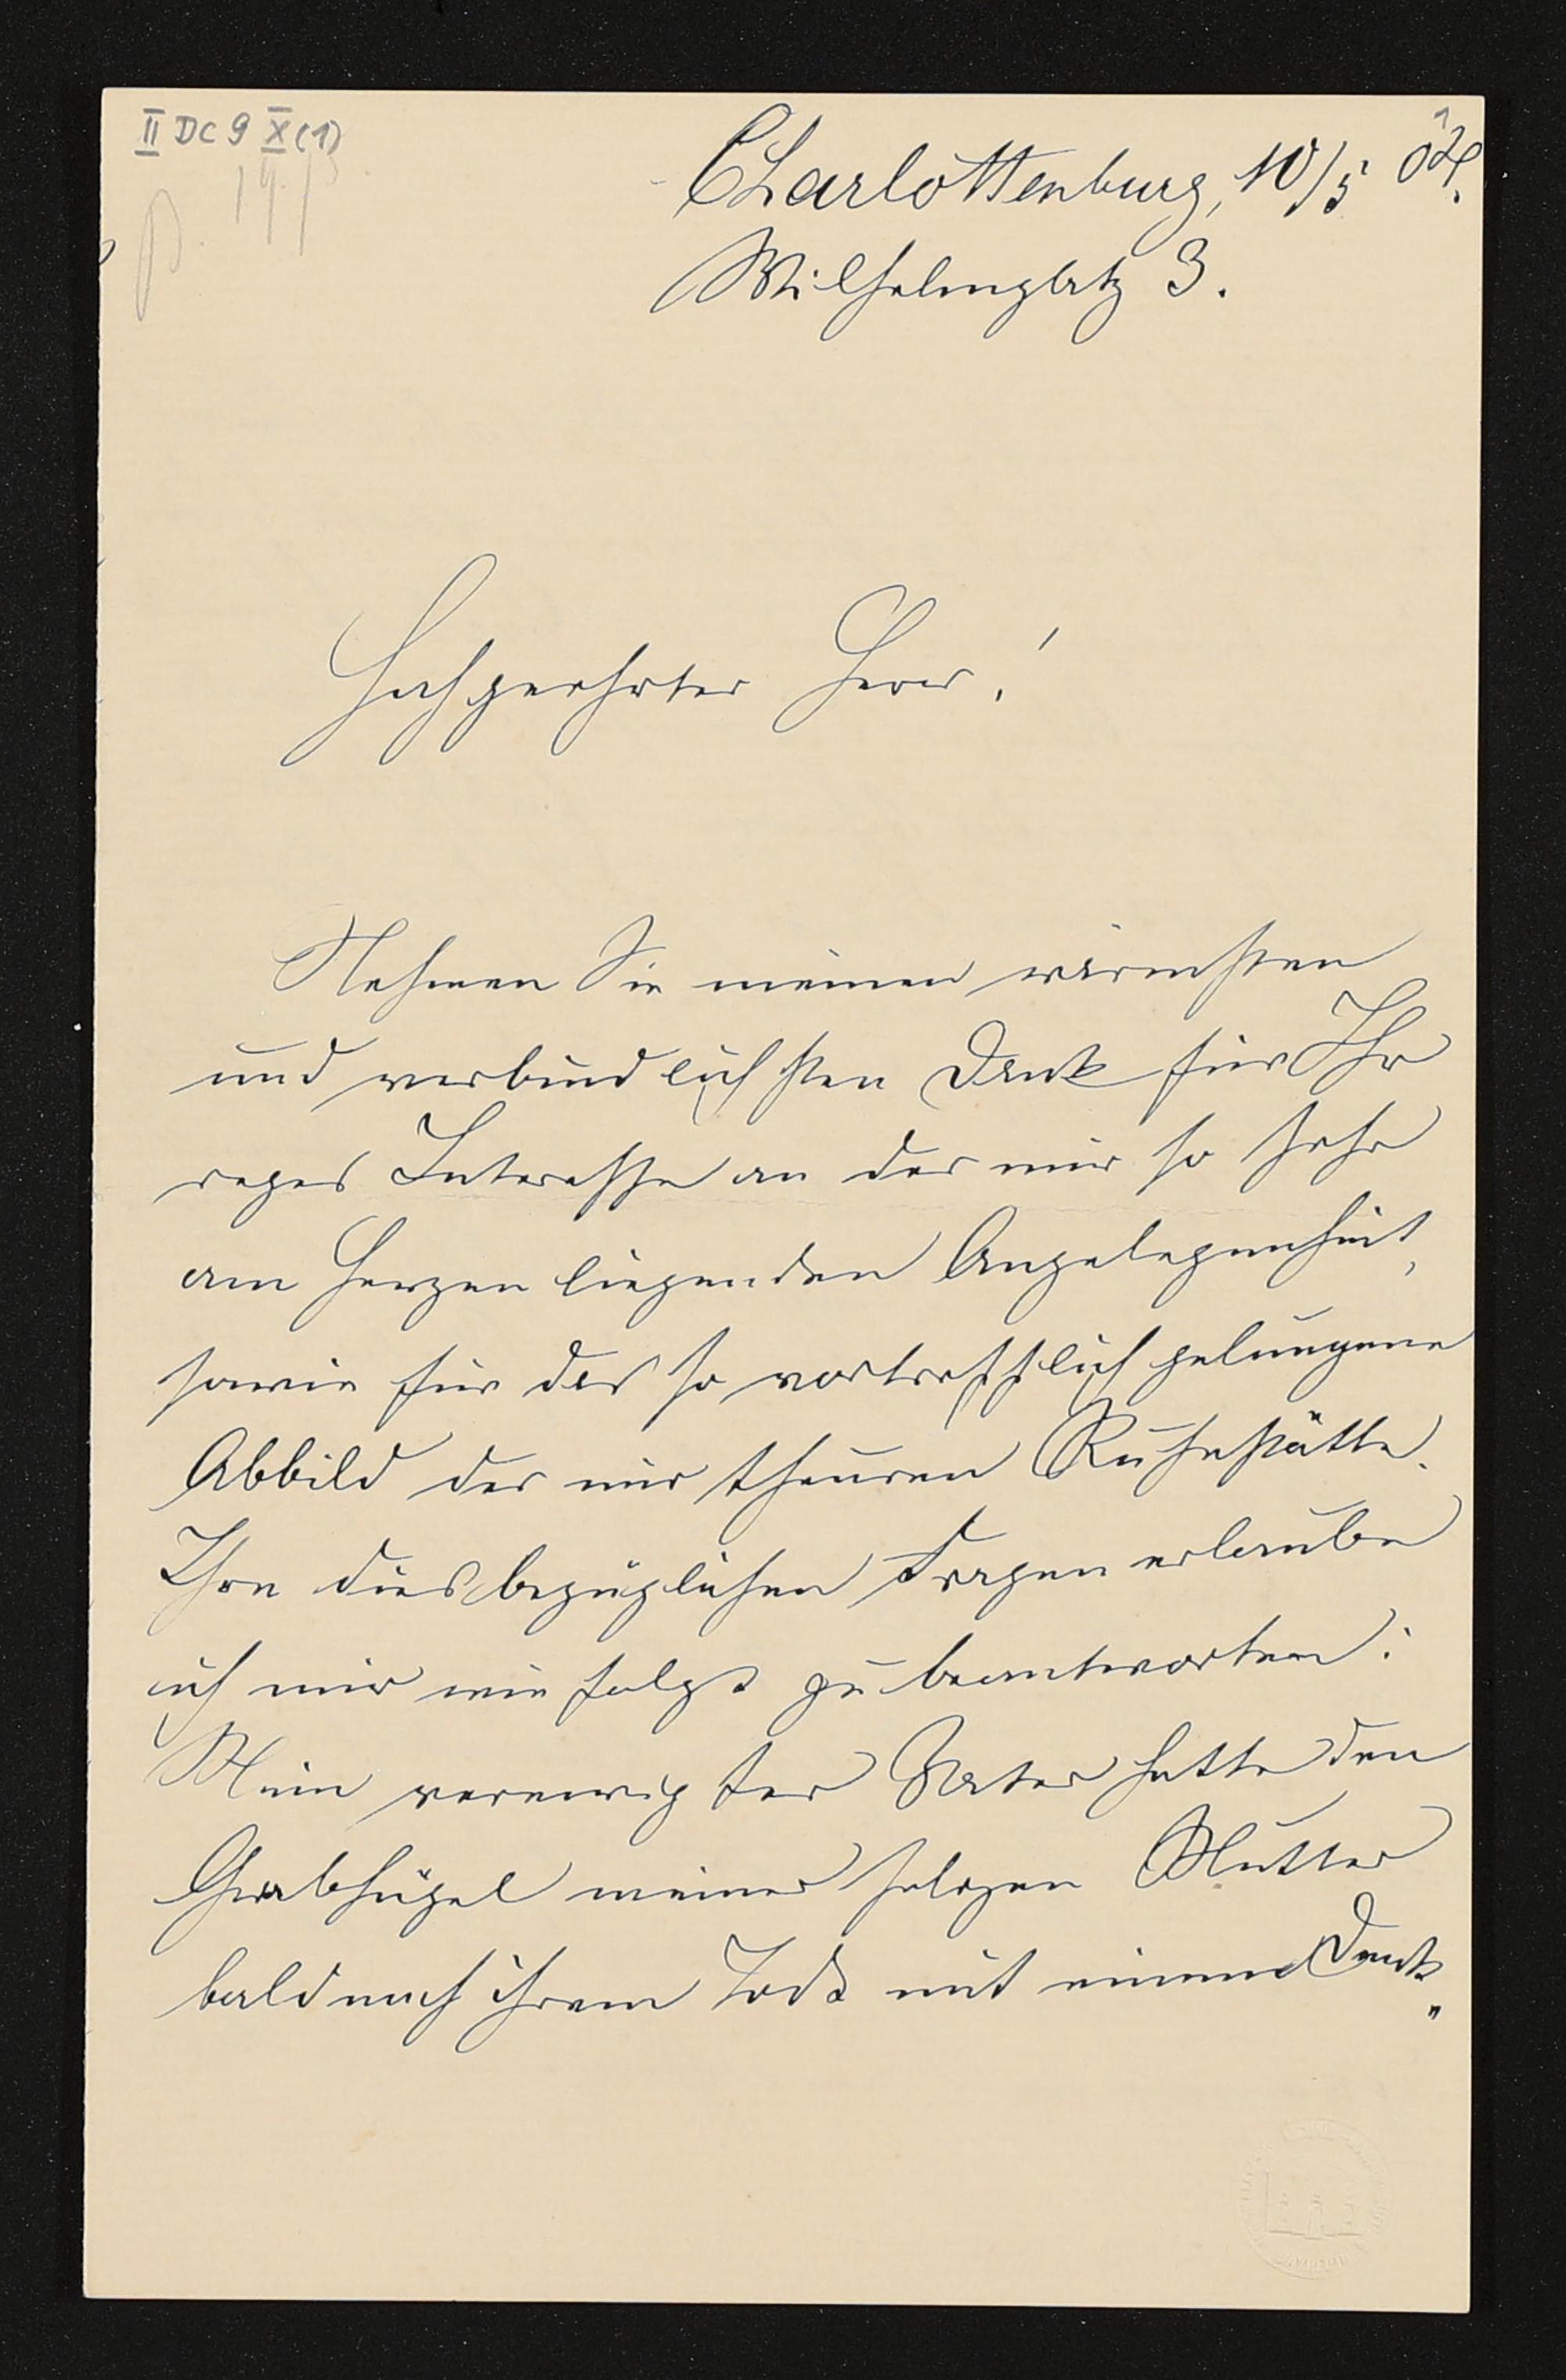 II DC 9 X (1)
Charlottenburg, 10/5 02.
Wilhelmplatz 3.
Hochgeehrter Herr!
Nehmen Sie meinen wärmsten
und verbindlichsten Dank für Ihr
reges Interesse an der mir so sehr
am Herzen liegenden Angelegenheit,
sowie für das so vortrefflich gelungene
Abbild der mir theuren Ruhestätte.
Ihre diesbezüglichen Fragen erlaube
ich mir wie folgt zu beantworten:
Mein verewigter Vater hatte den
Grabhügel meiner seligen Mutter
bald nach ihrem Tode mit einem Denk„